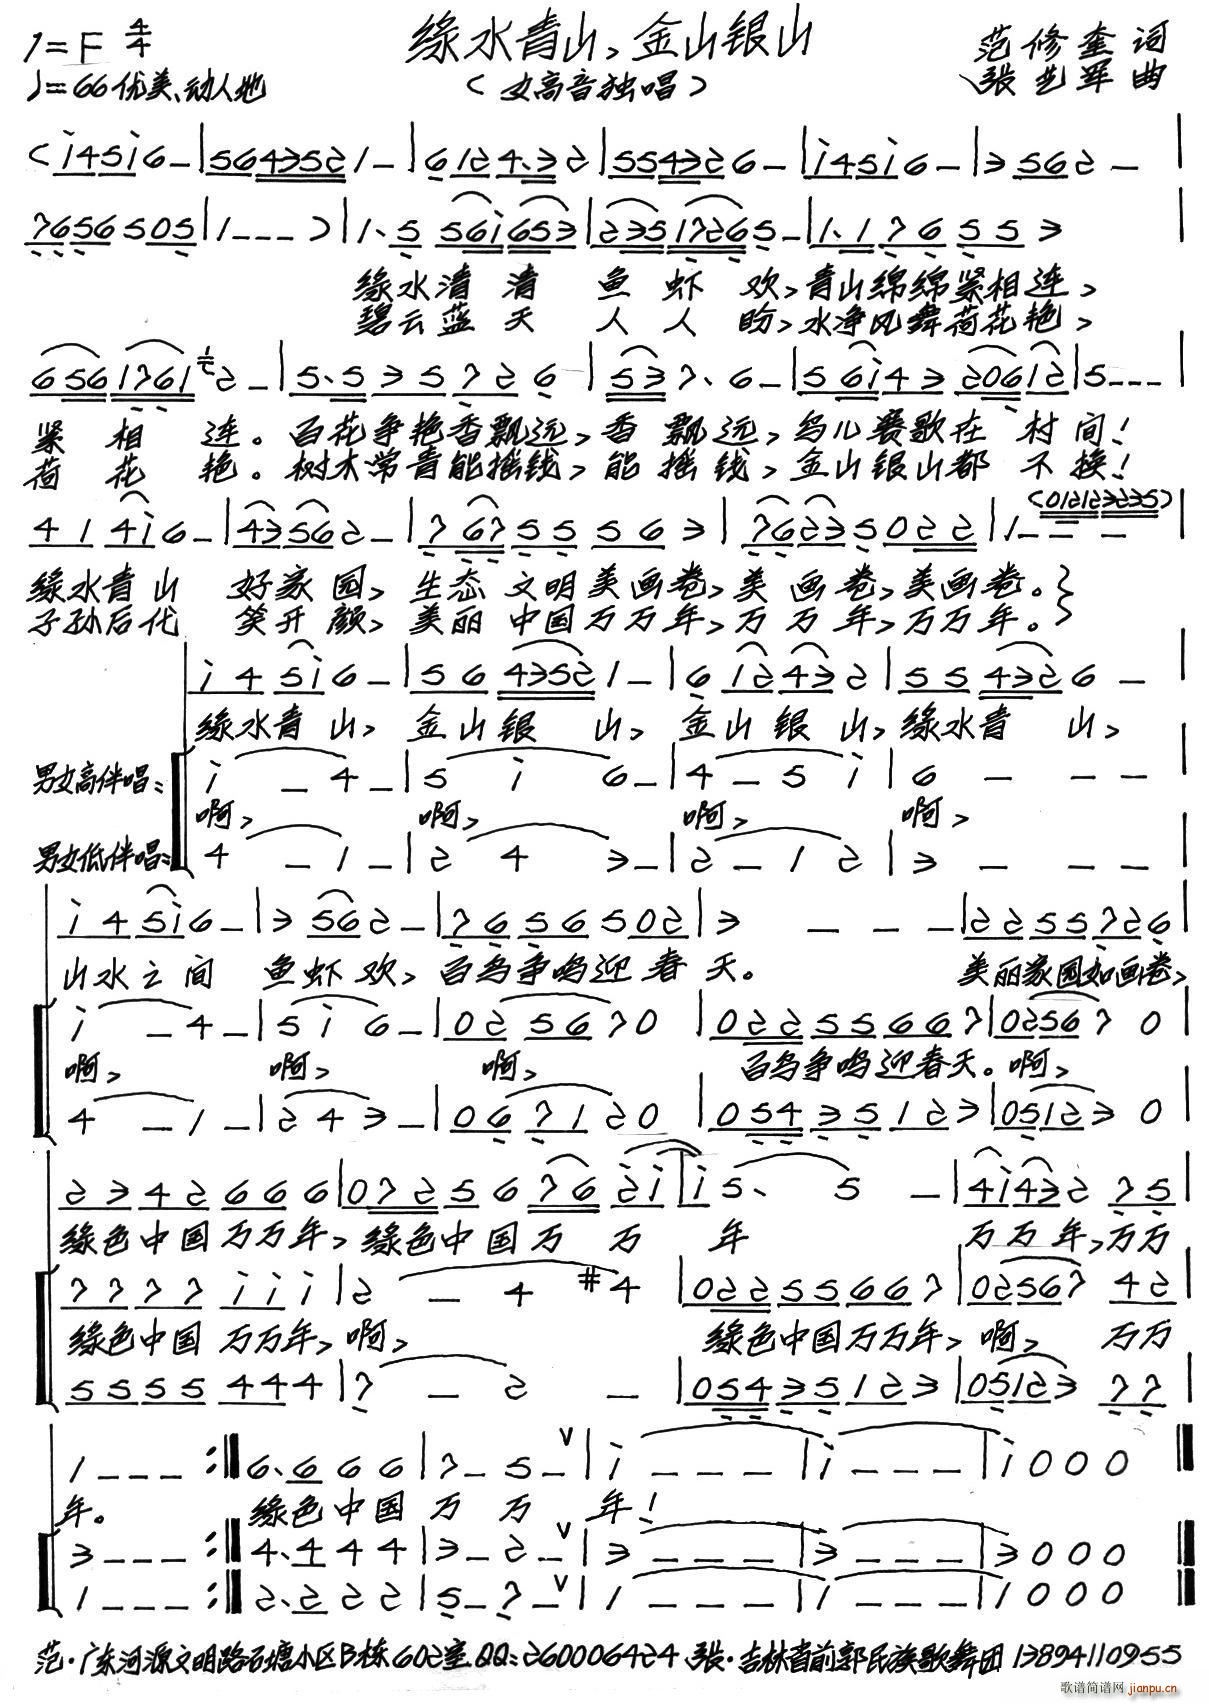 1=F 4/4
缘水青山,金山银山
范修奎 词
♩=66 优美、动人地
(女高音独唱)
张艺军 曲
(i45i6–|5643521–|6124.32|554326–|i45i6–|3562–
7656505|1---)|1.5 56i653|23517265–|1.1 76 553
缘水清清鱼虾欢,青山绵绵紧相连,
碧云蓝天人人盼,水净风舞荷花艳,
65617612–|5.5 35 726|5337.6–|5 6i43 20612|5---
紧相连。百花争艳香飘远,香飘远,鸟儿赛歌在村间!
荷花艳。树木常青能摇钱,能摇钱,金山银山都不换!
41 4i6–|43562–|7 67 55 563|7623 5022|1--- (012123235)
缘水青山好家园,生态文明美画卷,美画卷,美画卷。
子孙后代笑开颜,美丽中国万万年,万万年,万万年。
i4 5i6–|56 43521–|6 12432|55 4326–
缘水青山,金山银山,金山银山,缘水青山,
男女高伴唱:
i–4–|5 i 6–|4–5 i|6---
啊,啊,啊,啊,
男女低伴唱:
4–1–|2 4 3–|2–1 2|3---
i4 5i6–|3 562–|76 56 502|3---|22 55 726
山水之间鱼虾欢,百鸟争鸣迎春天。美丽家园如画卷,
i–4–|5 i 6–|02 56 70|022 55 667|0256 70
啊,啊,啊,百鸟争鸣迎春天。啊,
4–1–|2 4 3–|06 71 20|054 35 123|0512 30
23 42 666|072 56 76 2i|i5. 5–|4i432 75
緣色中国万万年,緣色中国万万年万万年,万万
77 77 iii|2–4 #4|022 55 667|02567 42
緣色中国万万年,啊,緣色中国万万年,啊,万万
55 55 444|7–2–|054 35 123|05123 77
1---:‖6.6 66|7–5–∨|i---|i---|i000‖
年。緣色中国万万年!
3---:‖4.4 44|3–2–∨|3---|3---|3000‖
1---:‖2.2 22|5–7–∨|1---|1---|1000‖
范·广东河源文明路石塘小区B栋602室.QQ:260006424、張·吉林省前郭民族歌舞团 13894110955
歌谱简谱网
jianpu.cn